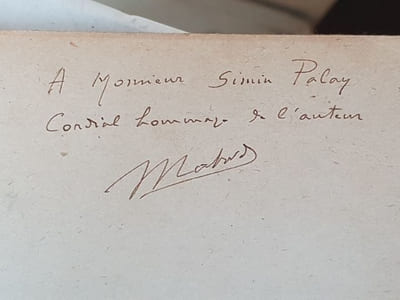 A Monsieur Simin Palay
Cordial hommage de l'auteur